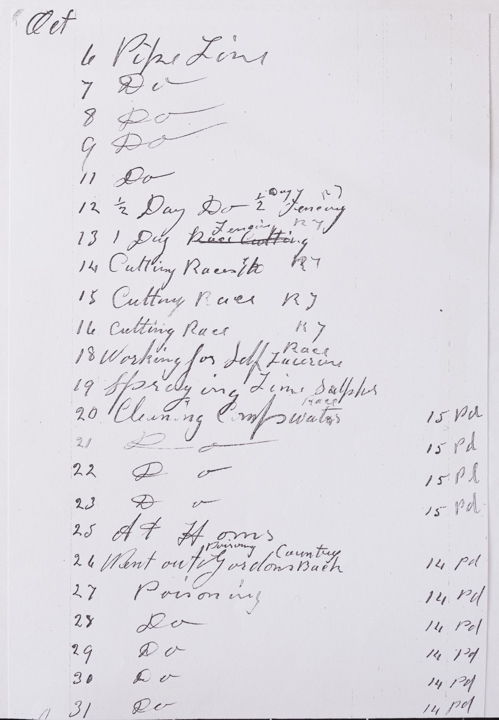 Oct
6 Pipe Line
7 Do
8 Do
9 Do
11 Do
12 ½ Day Do ½ Day Fencing R7
13 1 Day Race Cutting Fencing R7
14 Cutting Race R7
15 Cutting Race R7
16 Cutting Race R7
18 Working for Self Race Lucerne
19 Spraying Lime Sulpher
20 Cleaning Camp Race water 15 Pd
21 Do 15 Pd
22 Do 15 Pd
23 Do 15 Pd
25 At Home
26 Went out Poisoning Gordons Back Country 14 Pd
27 Poisoning 14 Pd
28 Do 14 Pd
29 Do 14 Pd
30 Do 14 Pd
31 Do 14 Pd